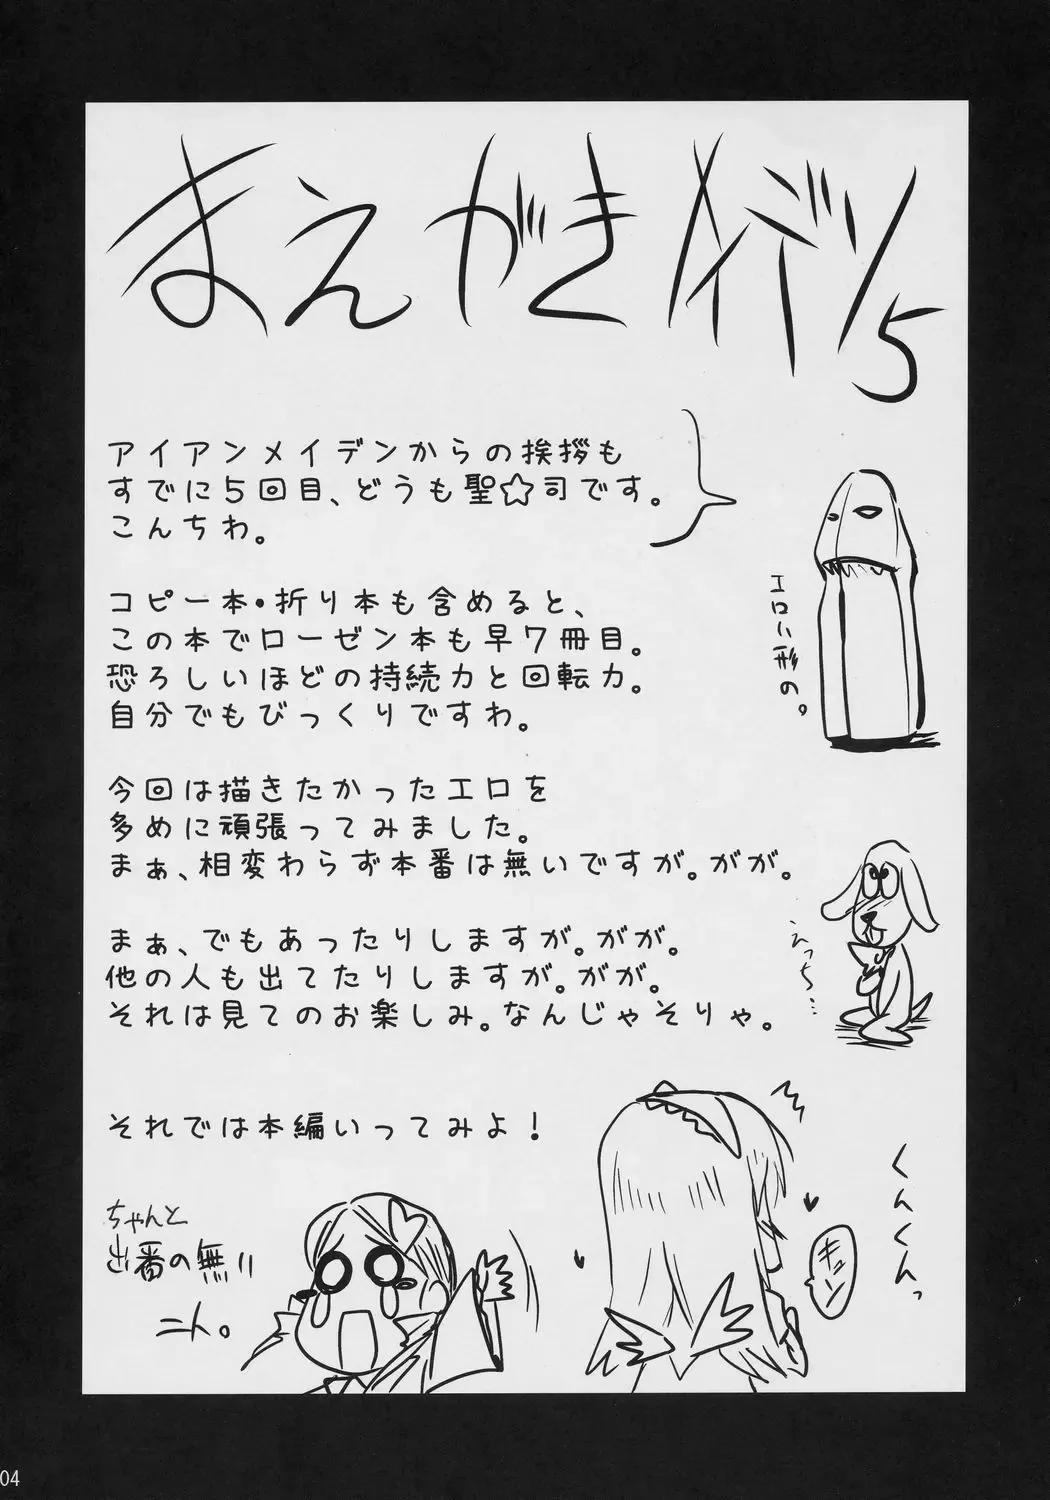 まえがきメイデン5
アイアンメイデンからの挨拶も
すでに5回目、どうも聖☆司です。
こんちわ。
エロい形の。
コピー本・折り本も含めると、
この本でローゼン本も早7冊目。
恐ろしいほどの持続力と回転力。
自分でもびっくりですわ。
今回は描きたかったエロを
多めに頑張ってみました。
まぁ、相変わらず本番は無いですが。がが。
まぁ、でもあったりしますが。がが。
他の人も出てたりしますが。がが。
それは見てのお楽しみ。なんじゃそりゃ。
えっち…
それでは本編いってみよ!
ちゃんと
出番の無い
ニト。
くんくんっ
キュン
04